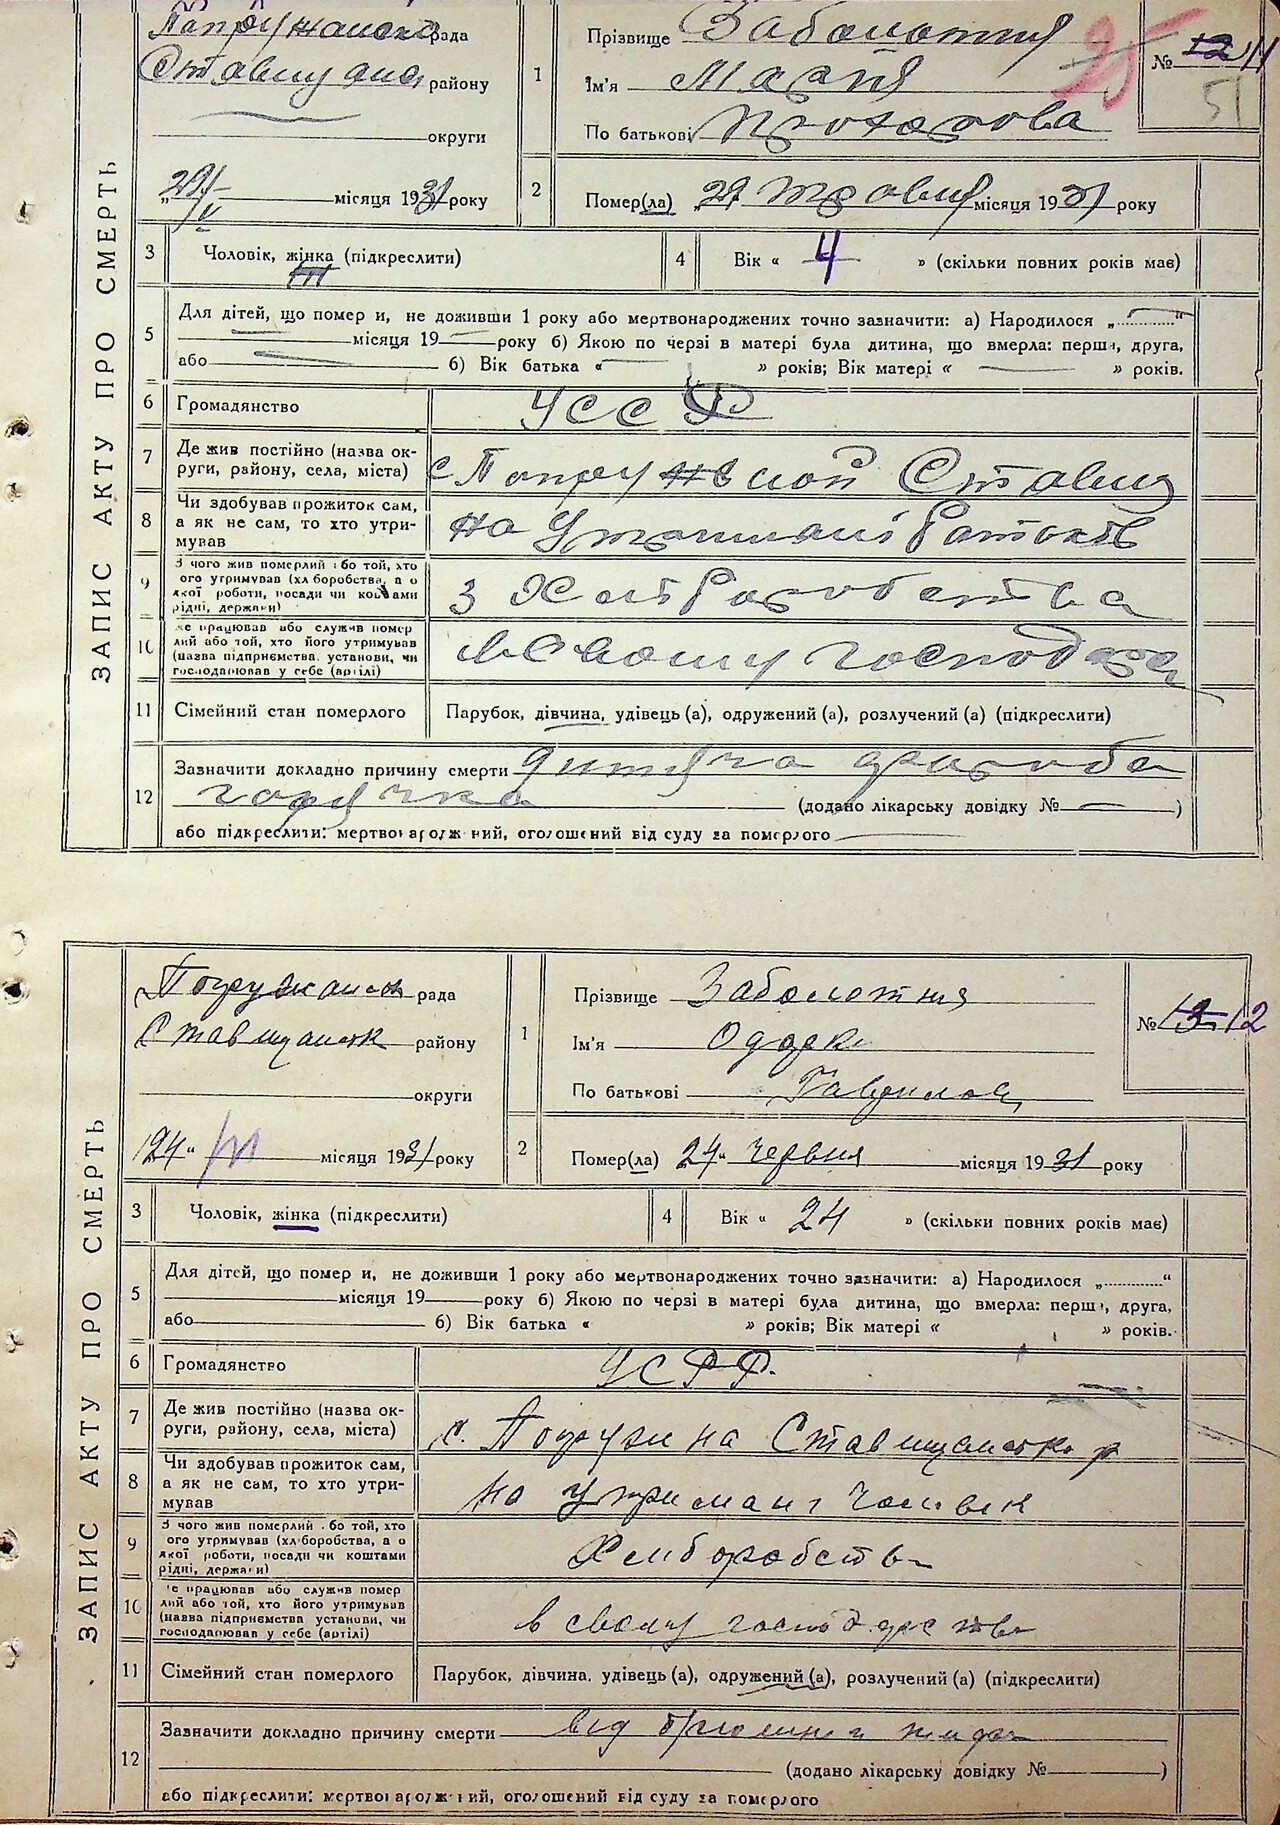 ЗАПИС АКТУ ПРО СМЕРТЬ
рада
району
округи
„29/V місяця 1931 року
1
Прізвище Заболотня
Ім'я Марія
По батькові Прохорова
25
№ 12 11
51
2
Помер(ла) „29 травня місяця 1931 року
3
Чоловік, жінка (підкреслити)
4
Вік « 4 » (скільки повних років має)
5
Для дітей, що помер и, не доживши 1 року або мертвонароджених точно зазначити: а) Народилося „ “
місяця 19 року б) Якою по черзі в матері була дитина, що вмерла: перша, друга,
або б) Вік батька « » років; Вік матері « » років.
6
Громадянство УССР
7
Де жив постійно (назва ок-
руги, району, села, міста)
8
Чи здобував прожиток сам,
а як не сам, то хто утри-
мував
на утриманні батьків
9
З чого жив померлий або той, хто
ого утримував (хліборобства, а о
якої роботи, посади чи коштами
рідні, держави)
з хліборобства
10
е працював або служив помер
лий або той, хто його утримував
(назва підприємства, установи, чи
господарював у себе (артілі)
в своєму
11
Сімейний стан померлого
Парубок, дівчина, удівець (а), одружений (а), розлучений (а) (підкреслити)
12
Зазначити докладно причину смерти дитяча хвороба
горячка (додано лікарську довідку № )
або підкреслити: мертвонароджений, оголошений від суду за померлого
ЗАПИС АКТУ ПРО СМЕРТЬ
рада
району
округи
„24“ VI місяця 1931 року
1
Прізвище Заболотня
Ім'я Одарка
По батькові Гаврилов
№ 13 12
2
Помер(ла) 24“ червня місяця 1931 року
3
Чоловік, жінка (підкреслити)
4
Вік « 24 » (скільки повних років має)
5
Для дітей, що помер и, не доживши 1 року або мертвонароджених точно зазначити: а) Народилося „ “
місяця 19 року б) Якою по черзі в матері була дитина, що вмерла: перша, друга,
або б) Вік батька « » років; Вік матері « » років.
6
Громадянство УСРР.
7
Де жив постійно (назва ок-
руги, району, села, міста)
с. Попружна Ставищанськ р
8
Чи здобував прожиток сам,
а як не сам, то хто утри-
мував
на утримані чоловік
9
З чого жив померлий або той, хто
ого утримував (хліборобства, а о
якої роботи, посади чи коштами
рідні, держави)
Хліборобства
10
е працював або служив помер
лий або той, хто його утримував
(назва підприємства установи, чи
господарював у себе (артілі)
в свому господарстві
11
Сімейний стан померлого
Парубок, дівчина, удівець (а), одружений (а), розлучений (а) (підкреслити)
12
Зазначити докладно причину смерти від
(додано лікарську довідку № )
або підкреслити: мертвонароджений, оголошений від суду за померлого